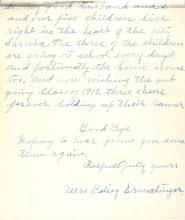 so. My good husband and I
and our five children live
right in the heart of the city
Service. The three of the children
are going to school every day
and fortunate the home is ours
too, and now wishing the out
going Class of 1912, three cheers
forever holding up their banner
Good Bye
Hoping to hear from you some
time again,
Respectfully yours,
Mrs Betsey Ermatinger